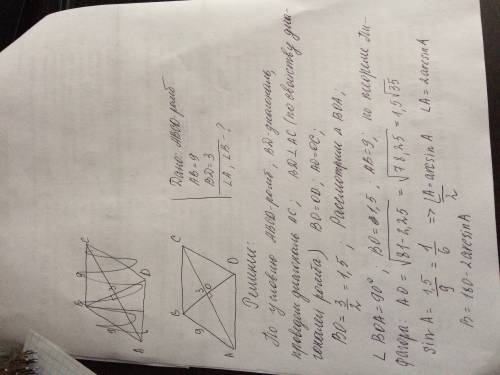 B
9
C
A
D
B
C
9
3
O
A
D
Дано: ABCD-ромб
AB = 9
BD = 3
∠A, ∠B - ?
Решение:
По условию ABCD-ромб, BD-диагональ,
проведем диагональ AC; BD⊥AC (по свойству диа-
гоналей ромба) BO=OD; AO=OC;
BO = 3/2 = 1,5; Рассмотрим Δ BOA;
∠ BOA = 90°, BO = 1,5; AB = 9; по теореме Пи-
фагора: AO = √81-2,25 = √78,25 = 1,5√35
sin A = 1,5/9 = 1/6 => ∠A/2 = arcsin A ∠A = 2arcsin A
B = 180 - 2arcsin A